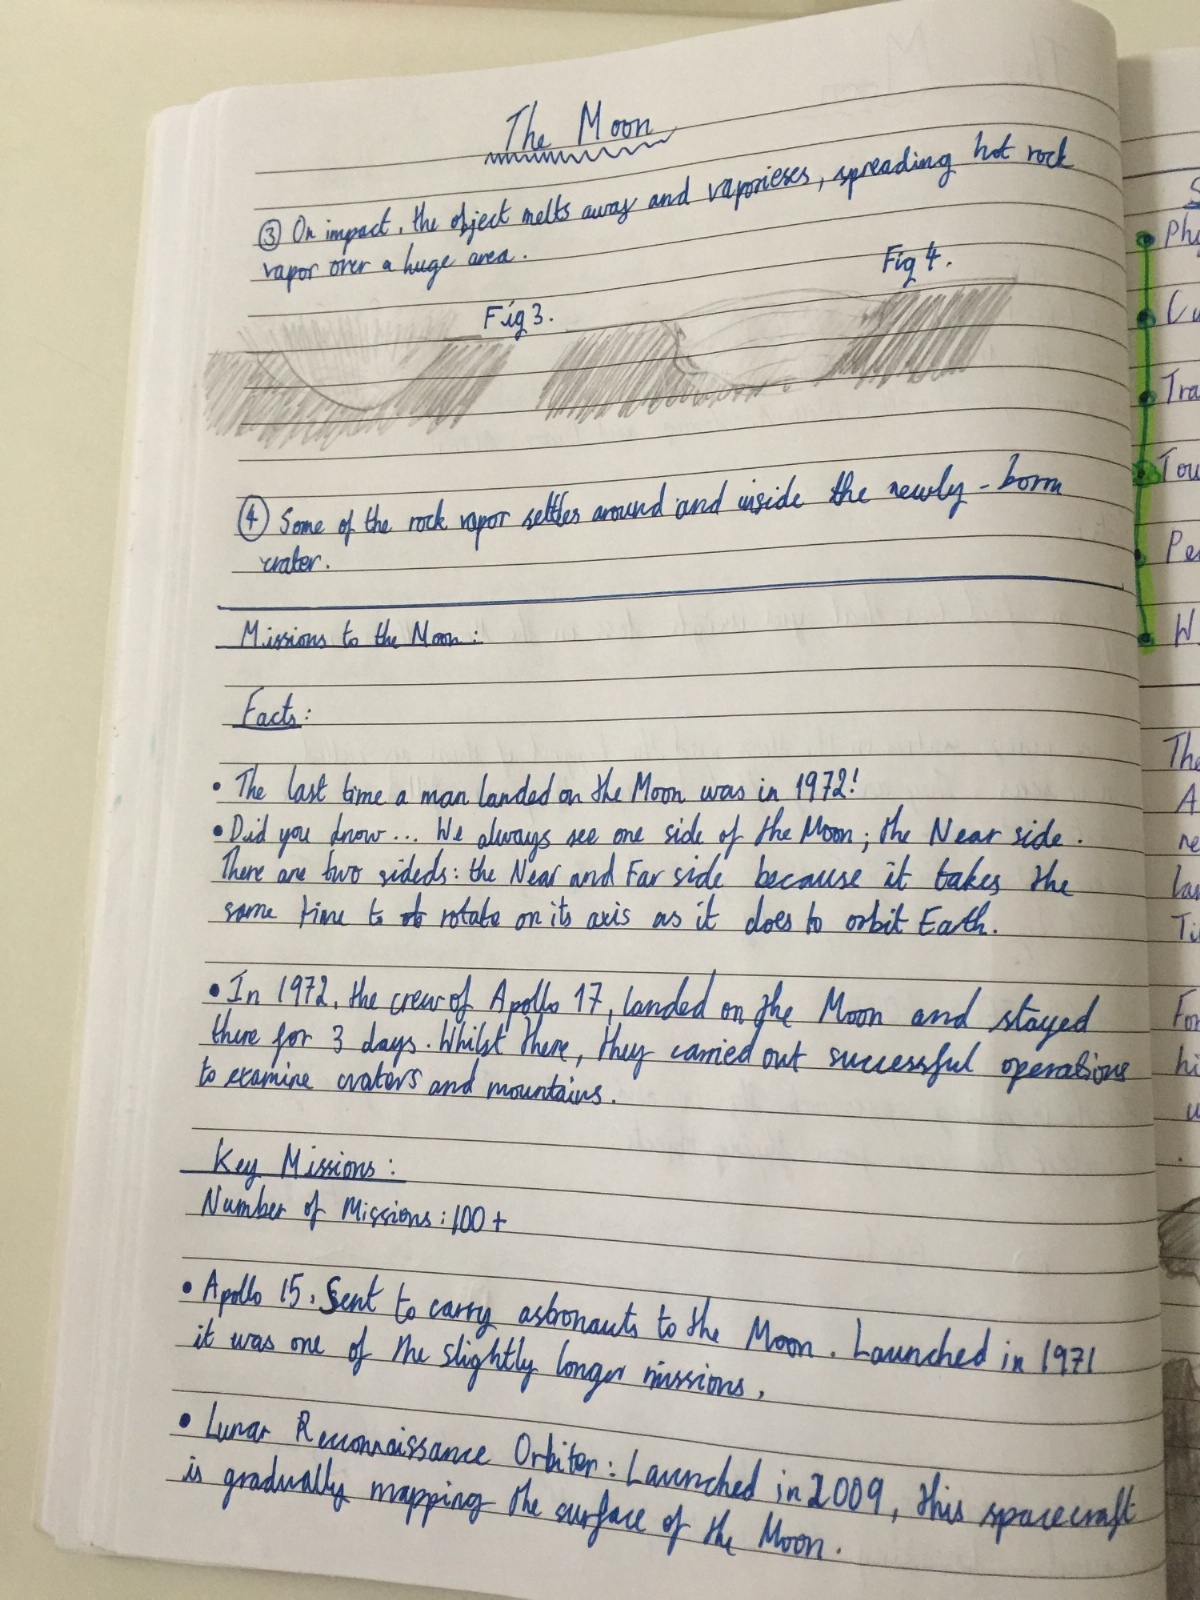 The Moon
③ On impact, the object melts away and vaporieses, spreading hot rock
vapor over a huge area.
Fig 4.
Fig 3.
④ Some of the rock vapor settles around and inside the newly-born
crater.
Missions to the Moon:
Facts:
• The last time a man landed on the Moon was in 1972!
• Did you know... We always see one side of the Moon; the Near side.
There are two sideds: the Near and Far side because it takes the
same time to rotate on its axis as it does to orbit Earth.
• In 1972, the crew of Apollo 17, landed on the Moon and stayed
there for 3 days. Whilst there, they carried out successful operations
to examine craters and mountains.
Key Missions:
Number of Missions: 100+
• Apollo 15. Sent to carry astronauts to the Moon. Launched in 1971
it was one of the slightly longer missions.
• Lunar Reconnaissance Orbiter: Launched in 2009, this spacecraft
is gradually mapping the surface of the Moon.
Phy
Cu
Tra
Tou
Pe
W
The
A
ne
lan
Ti
For
hi